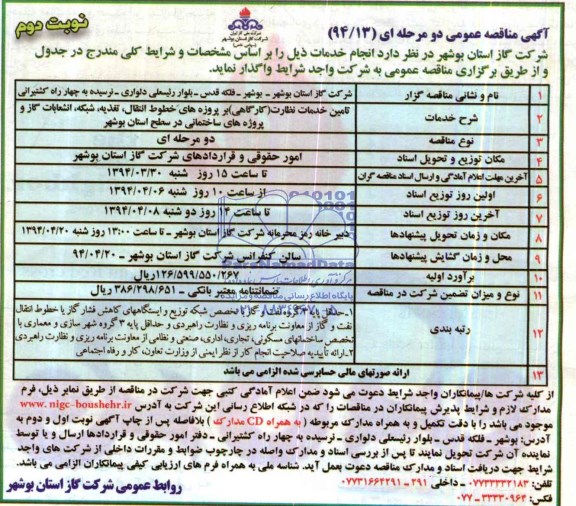 نوبت دوم
شرکت ملی گاز ایران
شرکت گاز استان بوشهر
آگهی مناقصه عمومی دو مرحله ای (۹۴/۱۳)
شرکت گاز استان بوشهر در نظر دارد انجام خدمات ذیل را بر اساس مشخصات و شرایط کلی مندرج در جدول
و از طریق برگزاری مناقصه عمومی به شرکت واجد شرایط واگذار نماید.
۱ نام و نشانی مناقصه گزار شرکت گاز استان بوشهر - بوشهر - فلکه قدس - بلوار رئیسعلی دلواری - نرسیده به چهار راه کشتیرانی
۲ شرح خدمات تامین خدمات نظارت (کارگاهی) بر پروژه های خطوط انتقال، تغذیه، شبکه، انشعابات گاز و
پروژه های ساختمانی در سطح استان بوشهر
۳ نوع مناقصه دو مرحله ای
۴ مکان توزیع و تحویل اسناد امور حقوقی و قراردادهای شرکت گاز استان بوشهر
۵ آخرین مهلت اعلام آمادگی و ارسال اسناد مناقصه گران تا ساعت ۱۵ روز شنبه ۱۳۹۴/۰۳/۳۰
۶ اولین روز توزیع اسناد از ساعت ۱۰ روز شنبه ۱۳۹۴/۰۴/۰۶
۷ آخرین روز توزیع اسناد تا ساعت ۱۴ روز دو شنبه ۱۳۹۴/۰۴/۰۸
۸ مکان و زمان تحویل پیشنهادها دبیر خانه رمز محرمانه شرکت گاز استان بوشهر - تا ساعت ۱۳:۰۰ روز شنبه ۱۳۹۴/۰۴/۲۰
۹ محل و زمان گشایش پیشنهادها سالن کنفرانس شرکت گاز استان بوشهر - ۹۴/۰۴/۲۰
۱۰ برآورد اولیه ۱۲۶/۵۹۹/۵۵۰/۲۶۷ ریال
۱۱ نوع و میزان تضمین شرکت در مناقصه ضمانتنامه معتبر بانکی - ۳۸۶/۲۹۸/۶۵۱ ریال
۱۲ رتبه بندی ۱-حداقل پایه ۳ گروه نفت و گاز با تخصص شبکه توزیع و ایستگاههای کاهش فشار گاز یا خطوط انتقال
نفت و گاز از معاونت برنامه ریزی و نظارت راهبردی و حداقل پایه ۳ گروه شهر سازی و معماری با
تخصص ساختمانهای مسکونی، تجاری، اداری، صنعتی و نظامی از معاونت برنامه ریزی و نظارت راهبردی
۲-ارائه تأییدیه صلاحیت انجام کار از نظر ایمنی از وزارت تعاون، کار و رفاه اجتماعی
۱۳ ارائه صورتهای مالی حسابرسی شده الزامی می باشد
از کلیه شرکت ها/پیمانکاران واجد شرایط دعوت می شود ضمن اعلام آمادگی کتبی جهت شرکت در مناقصه از طریق نمابر ذیل، فرم
مدارک لازم و شرایط پذیرش پیمانکاران در مناقصات را که در شبکه اطلاع رسانی این شرکت به آدرس www.nigc-boushehr.ir
موجود می باشد را با دقت تکمیل و به همراه مدارک مربوطه ( به همراه CD مدارک ) بلافاصله پس از چاپ آگهی نوبت اول و دوم به
آدرس: بوشهر - فلکه قدس - بلوار رئیسعلی دلواری - نرسیده به چهار راه کشتیرانی - دفتر امور حقوقی و قراردادها ارسال و یا توسط
نماینده آن شرکت تحویل نمایند تا پس از بررسی اسناد و مدارک واصله در چارچوب ضوابط و مقررات داخلی از شرکت های واجد
شرایط جهت دریافت اسناد و مدارک مناقصه دعوت بعمل آید. شناسه ملی به همراه فرم های ارزیابی کیفی پیمانکاران الزامی می باشد.
تلفن: ۰۷۷۳۳۳۳۲۱۸۳ - داخلی ۲۹۱ - ۰۷۷۳۱۶۶۴۲۹۱
فکس: ۳۳۳۳۰۹۶۴ - ۰۷۷
روابط عمومی شرکت گاز استان بوشهر